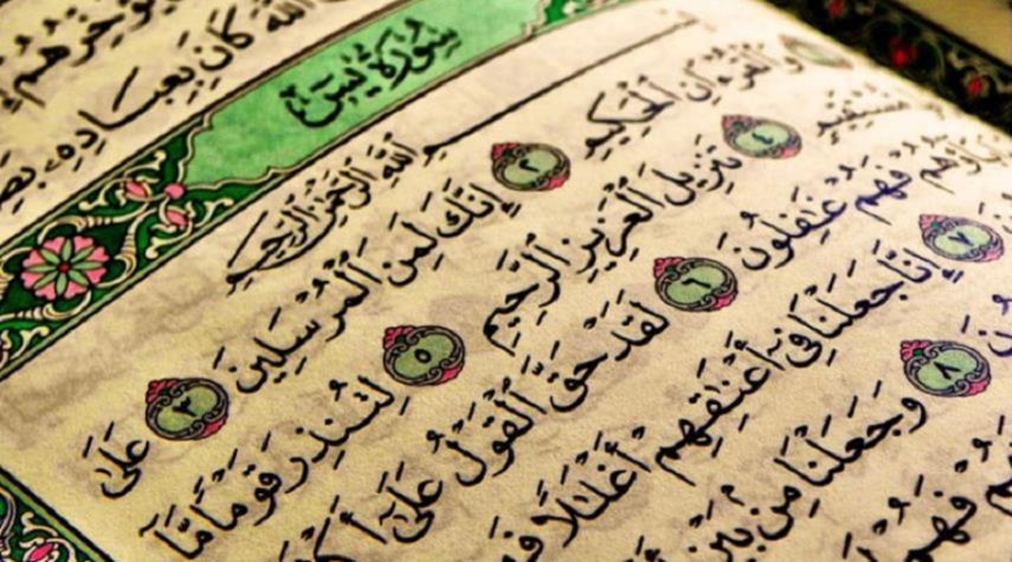 ويؤخرهم إ
الله كان بعباده بصي
سُورَةُ يسٓ
بِسْمِ ٱللَّهِ ٱلرَّحْمَٰنِ ٱلرَّحِيمِ
وَٱلْقُرْءَانِ ٱلْحَكِيمِ ٢ إِنَّكَ لَمِنَ ٱلْمُرْسَلِينَ ٣ عَلَىٰ
مُّسْتَقِيمٍ ٤ تَنزِيلَ ٱلْعَزِيزِ ٱلرَّحِيمِ ٥ لِتُنذِرَ قَوْمًا مَّآ
ءَابَآؤُهُمْ فَهُمْ غَٰفِلُونَ ٦ لَقَدْ حَقَّ ٱلْقَوْلُ عَلَىٰٓ أَكْ
٧ إِنَّا جَعَلْنَا فِىٓ أَعْنَٰقِهِمْ أَغْلَٰلًا فَهِ
ونَ ٨ وَجَعَلْنَا مِنۢ بَيْنِ
فَهُمْ لَا